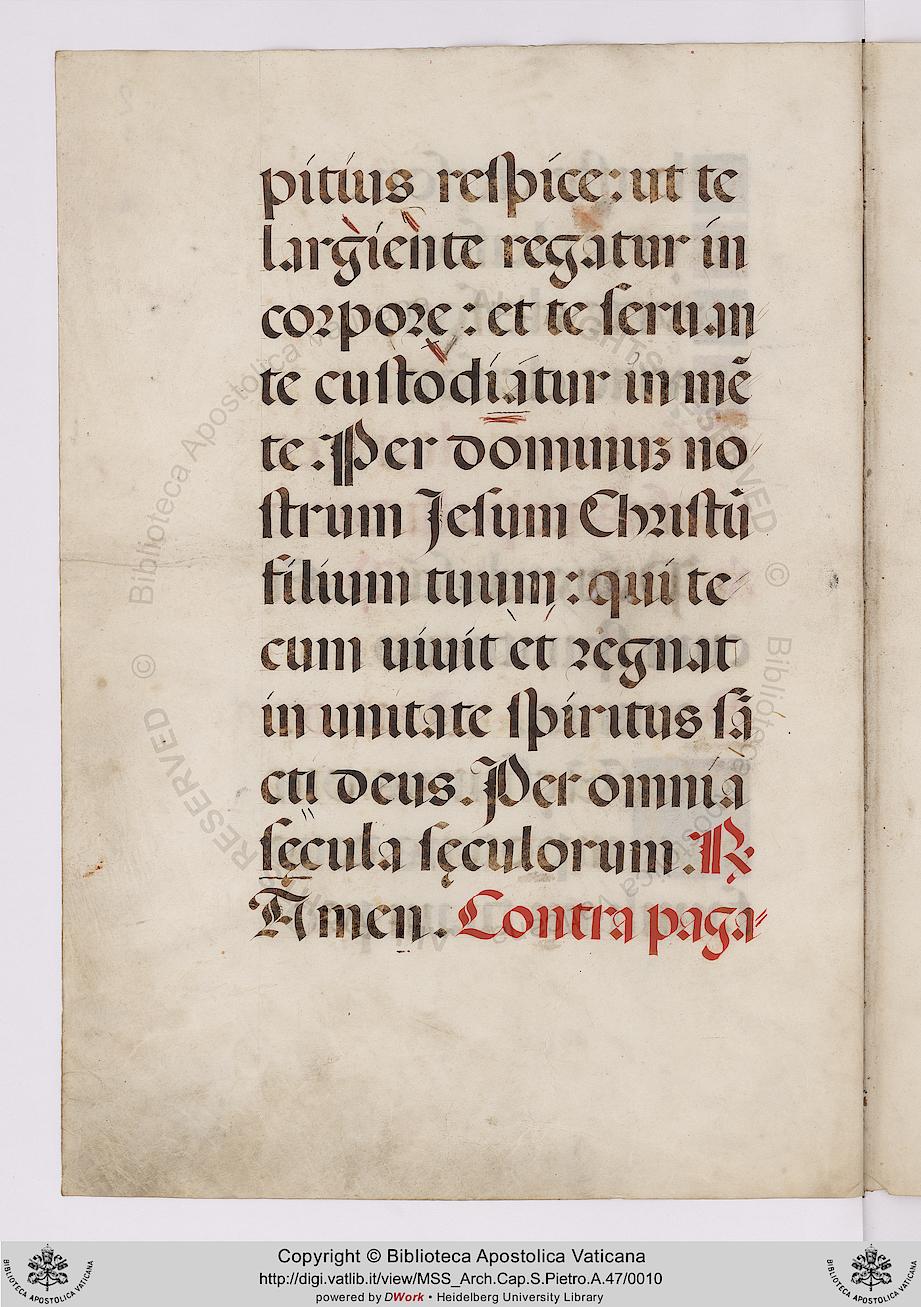 pitius respice: ut te
largiente regatur in
corpore: et te seruan
te custodiatur in mẽ
te. Per dominuʒ no
strum Jesum Christũ
filium tuum: qui te
cum uiuit et regnat
in unitate spiritus sã
cti deus. Per omnia
sęcula sęculorum. ℟
Amen. Contra paga⸗
© Biblioteca Apostolica Vaticana
ALL RIGHTS RESERVED
Copyright © Biblioteca Apostolica Vaticana
http://digi.vatlib.it/view/MSS_Arch.Cap.S.Pietro.A.47/0010
powered by DWork • Heidelberg University Library
BIBLIOTECA APOSTOLICA VATICANA
BIBLIOTECA APOSTOLICA VATICANA